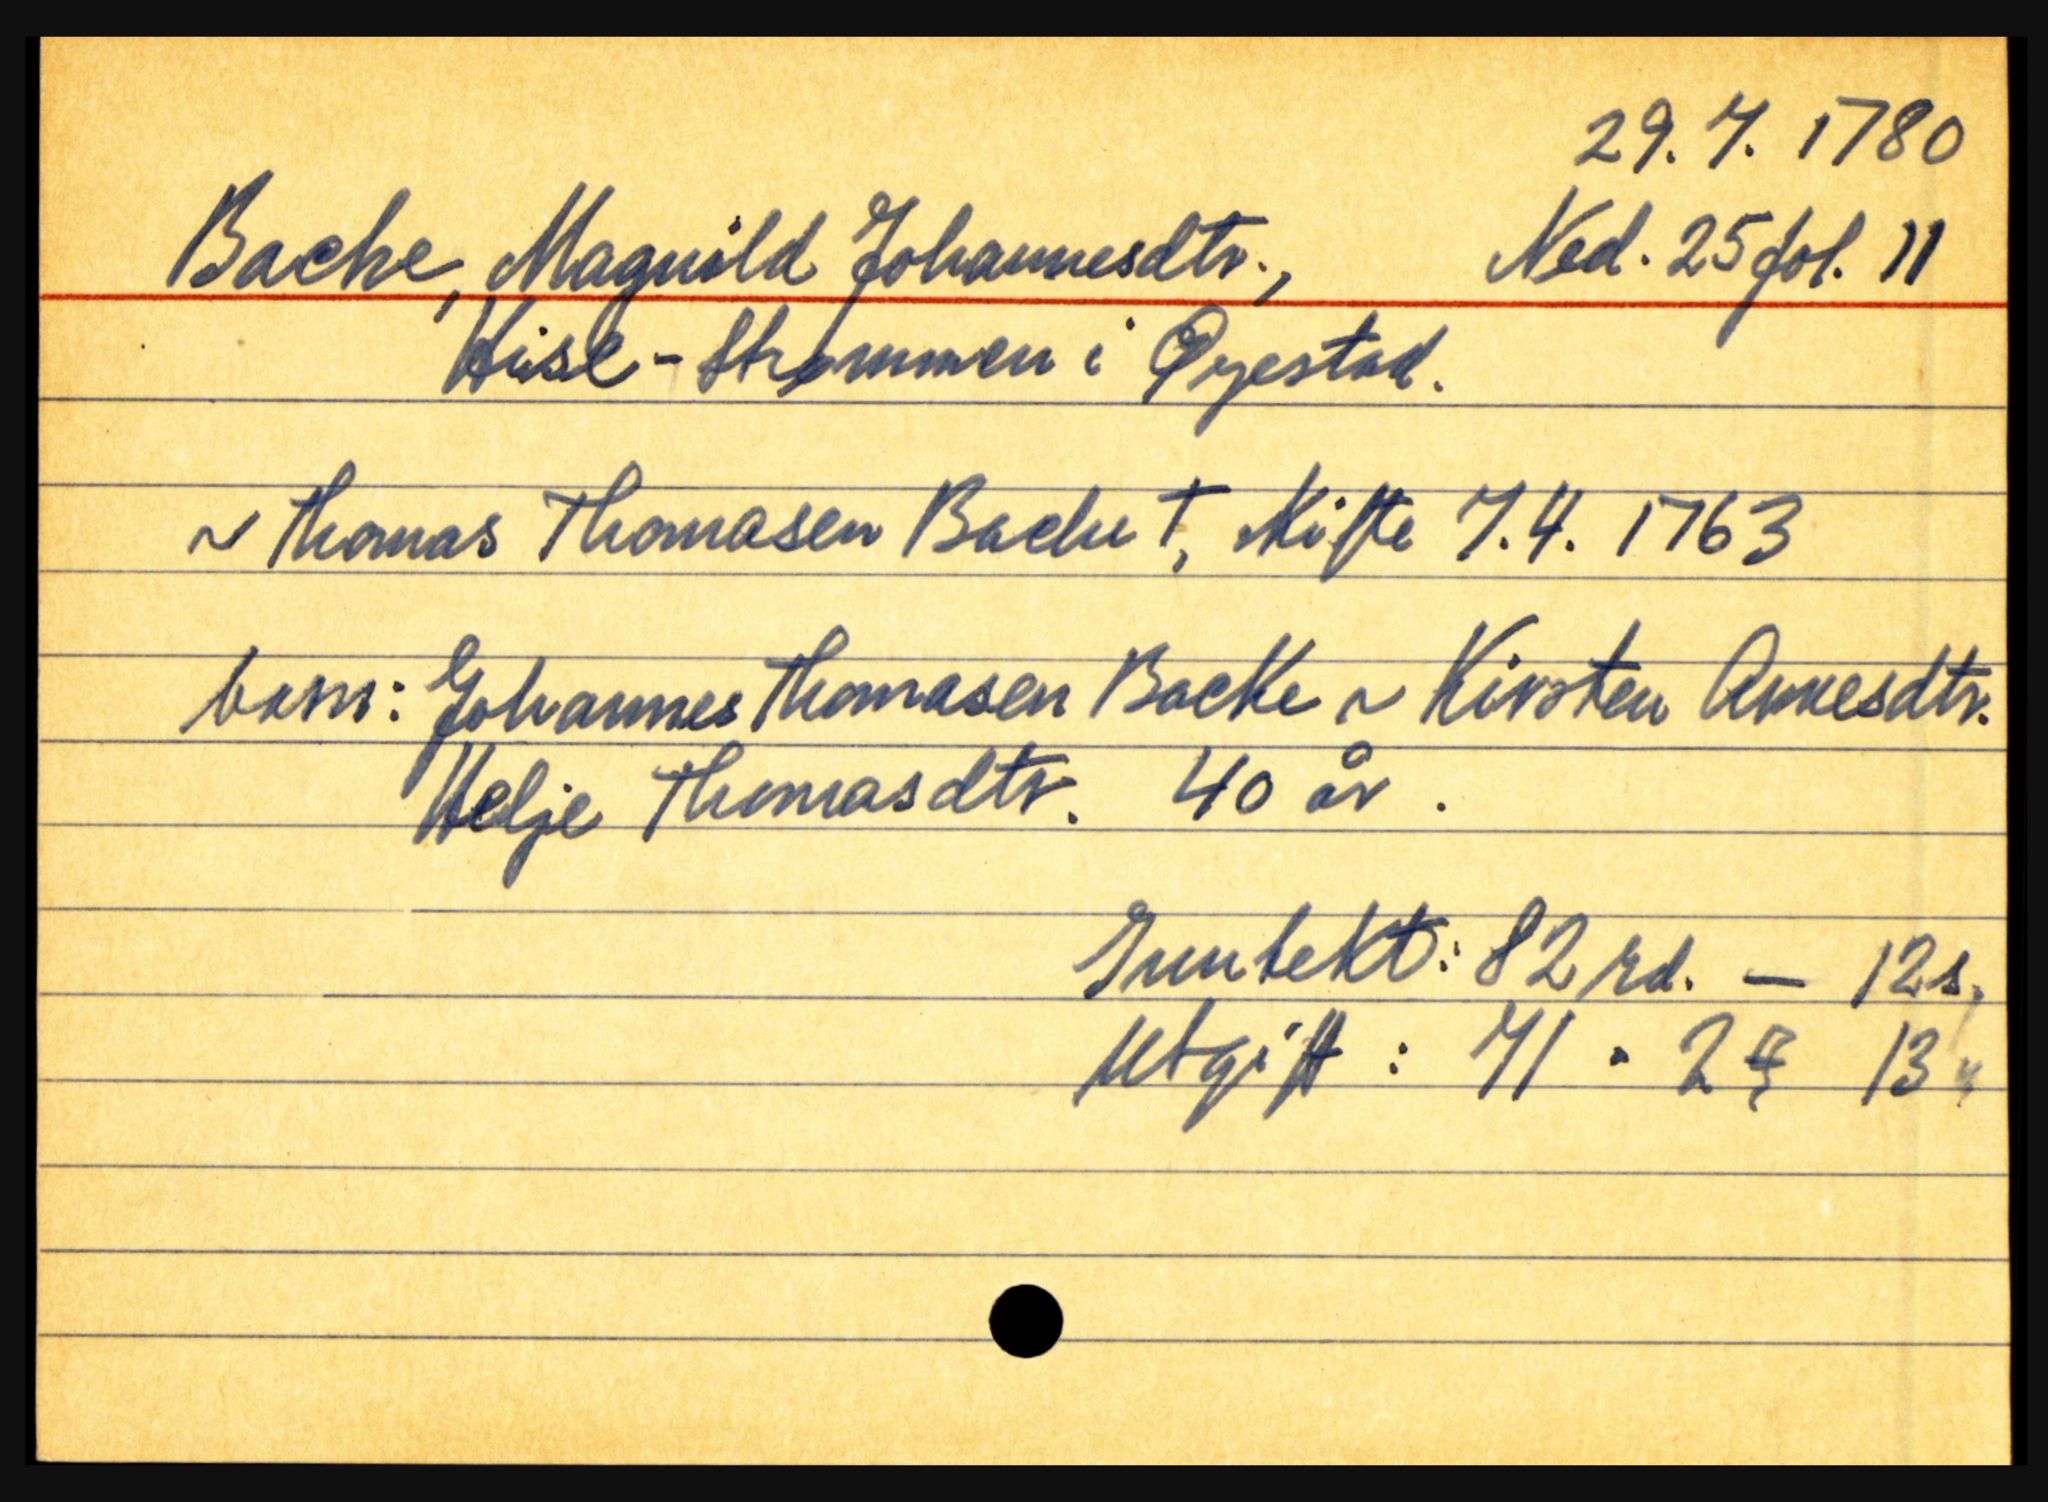 29.7.1780
Bache, Magnild Johannesdtr., Ned. 25 fol. 11
Hisø-Strømmen i Øyestad.
~ Thomas Thomasen Bache †, skifte 7.4.1763
barn: Johannes Thomasen Backe ~ Kirsten Annesdtr.
Helje Thomasdtr. 40 år.
Inntekt: 82 rd. — 12 s.
Utgift: 71 • 2 13 "